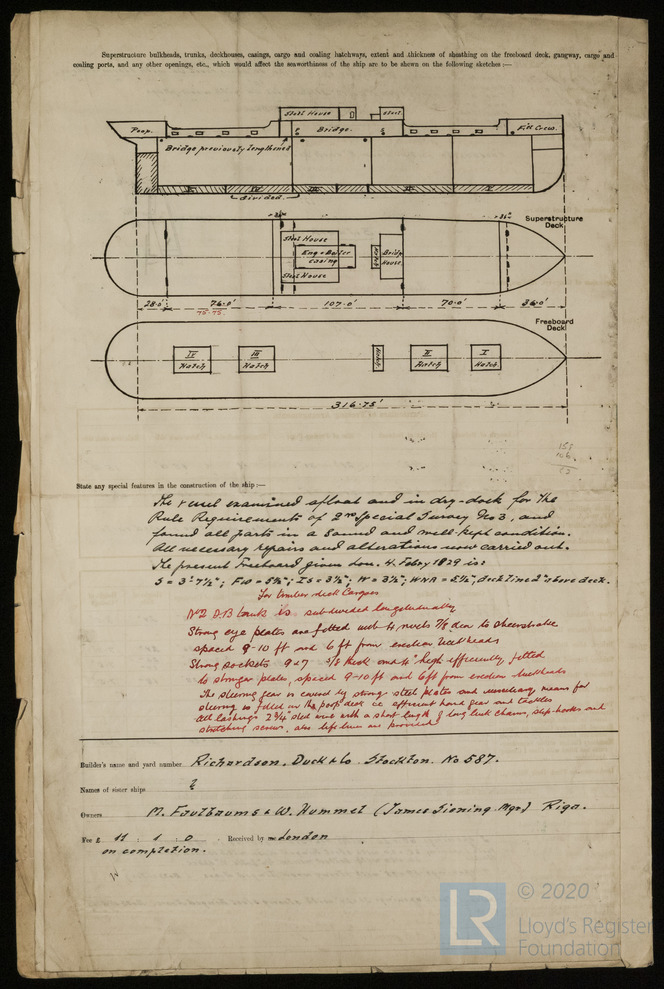 Superstructure bulkheads, trunks, deckhouses, casings, cargo and coaling hatchways, extent and thickness of sheathing on the freeboard deck, gangway, cargo and
coaling ports, and any other openings, etc., which would affect the seaworthiness of the ship are to be shewn on the following sketches:—
Steel House
Steel
Poop.
Bridge.
Crew.
Bridge previously lengthened
divided
Superstructure
Deck
Steel House
Eng & Boiler
casing
Steel House
Hatch
Bridge
House
28·0' 76·0' 107·0' 70·0' 36·0'
75·75
Freeboard
Deck
IV
Hatch
III
Hatch
Hatch
II
Hatch
I
Hatch
316·75'
State any special features in the construction of the ship:—
The vessel examined afloat and in dry-dock for the
Rule Requirements of 2nd Special Survey No 3, and
found all parts in a sound and well kept condition.
All necessary repairs and alterations now carried out.
The present Freeboard given Lon. 4. Febry 1929 is:
S = 3'-7½"; FW = 5¾"; IS = 3½"; W = 3½"; WNA = 5½", deck line 2" above deck.
For timber deck Cargoes
No 2 DB tank is subdivided longitudinally
Strong eye plates are fitted with 4 rivets 7/8 dia to sheerstrake
spaced 9-10 ft and 6 ft from erection bulkheads
Strong sockets 9x7 thick and high efficiently fitted
to stringer plate, spaced 9-10 ft and 6 ft from erection bulkheads
The steering gear is covered by strong steel plates and auxiliary means for
steering is fitted on the poop deck ie efficient hand gear and tackles
All lashings 2¾" steel wire with a short length of long link chains, slip-hooks and
stretching screws, also life lines are provided
Builder's name and yard number Richardson, Duck & Co Stockton. No 587.
Names of sister ships ?
Owners M. Faulbaums & W. Hummel (James Mgr) Riga.
Fee £ 11 : 1 : 0 Received by London
on completion.
LR
© 2020
Lloyd's Register
Foundation